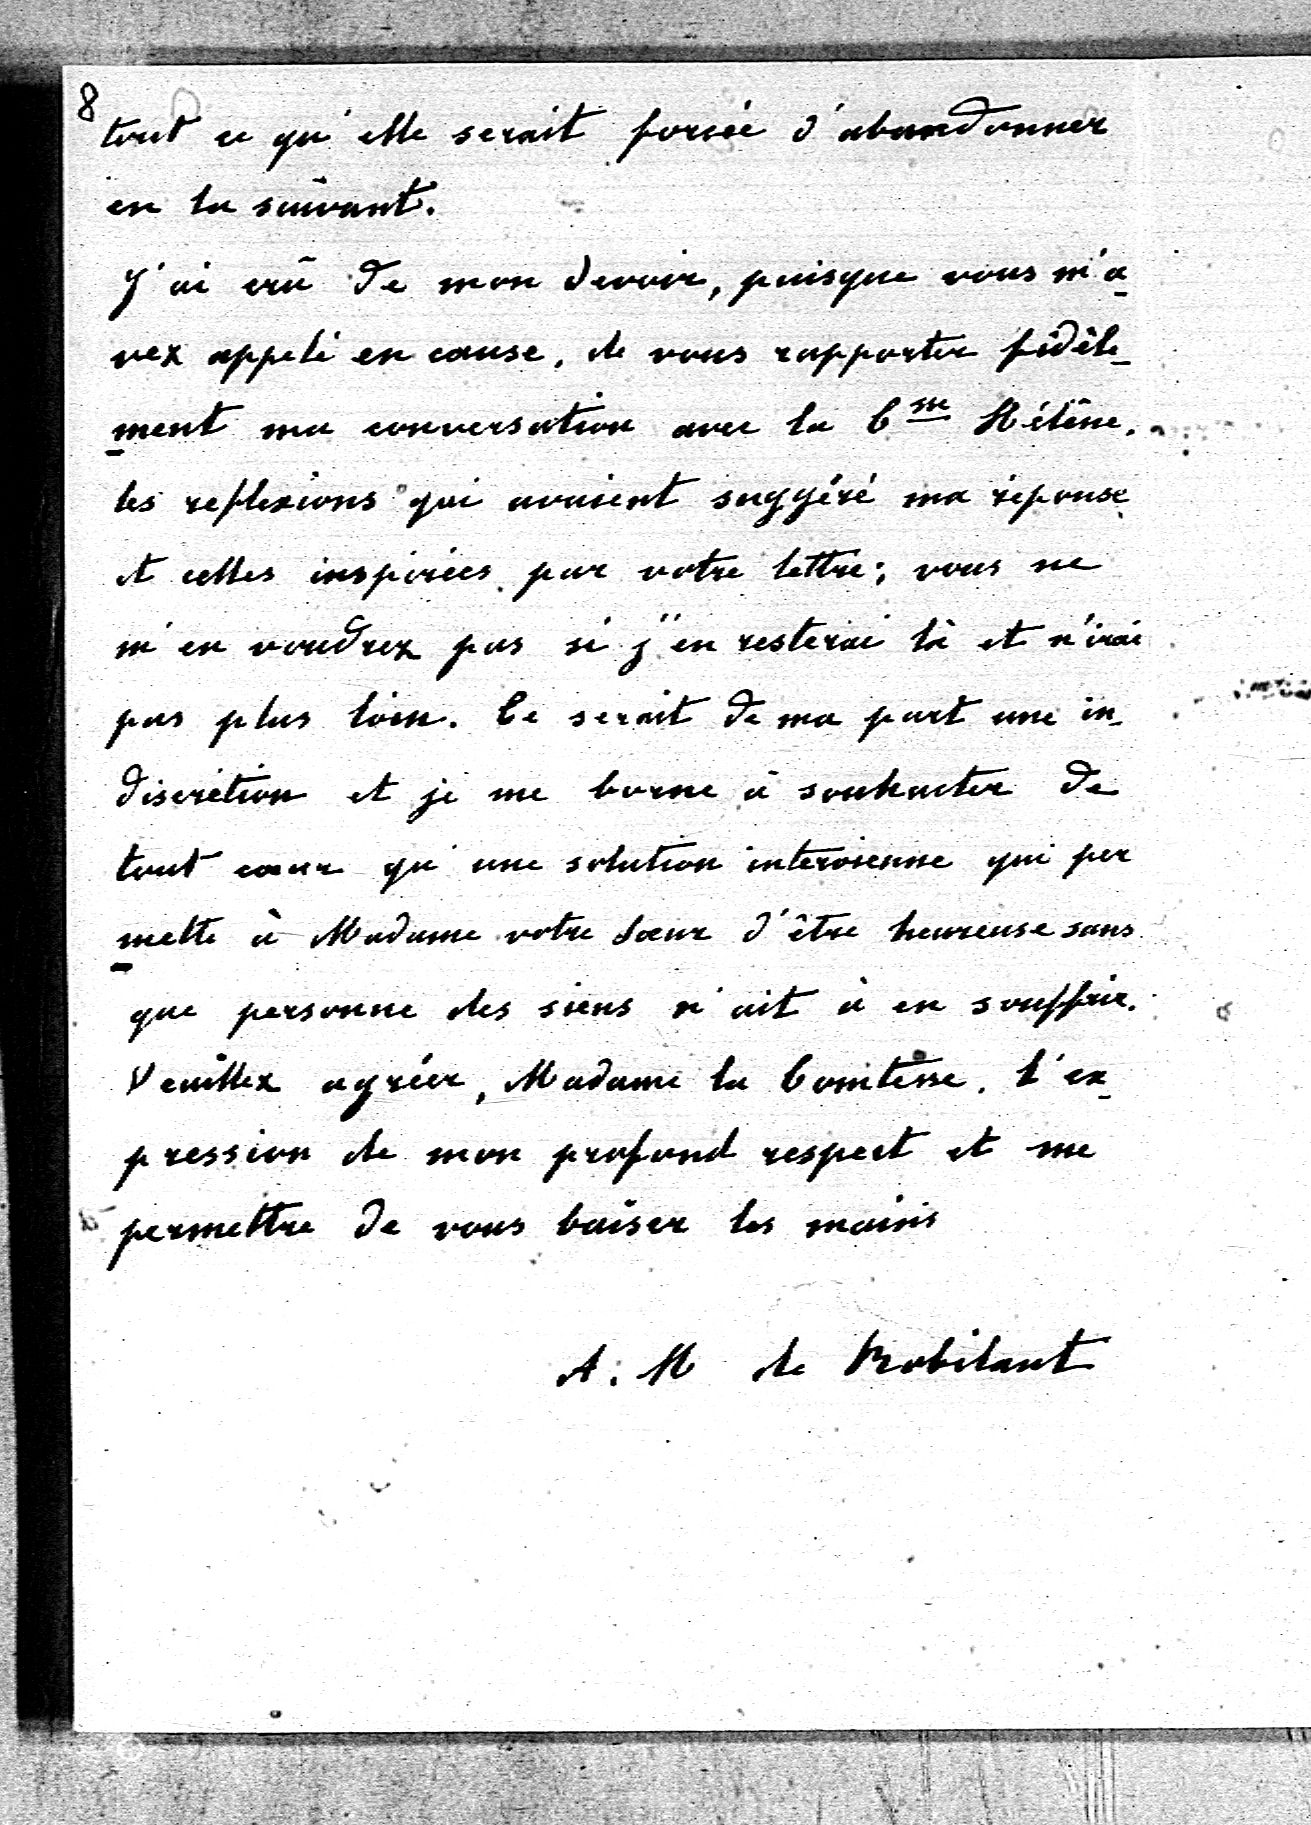 8
tout ce qu'elle serait forcée d'abandonner
en la suivant.
J'ai crû de mon devoir, puisque vous m'a-
vez appelé en cause, de vous rapporter fidèle-
ment ma conversation avec la Csse Hélène,
les reflexions qui avaient suggéré ma réponse
et celles inspirées par votre lettre; vous ne
m'en voudrez pas si j'en resterai là et n'irai
pas plus loin. Ce serait de ma part une in-
discrétion et je me borne à souhaiter de
tout cœur qu'une solution intervienne qui per
mette à Madame votre sœur d'être heureuse sans
que personne des siens n'ait à en souffrir.
Veuillez agréer, Madame la Comtesse, l'ex-
pression de mon profond respect et me
permettre de vous baiser les mains
A. M de Robilant